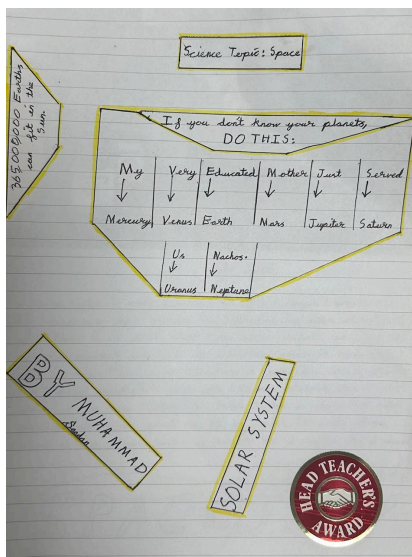 Science Topic: Space
365,000,000 Earths
can fit in the
Sun.
If you don't know your planets,
DO THIS:
My Very Educated Mother Just Served
Mercury Venus Earth Mars Jupiter Saturn
Us Nachos.
Uranus Neptune
BY MUHAMMAD
SOLAR SYSTEM
HEAD TEACHER'S
AWARD